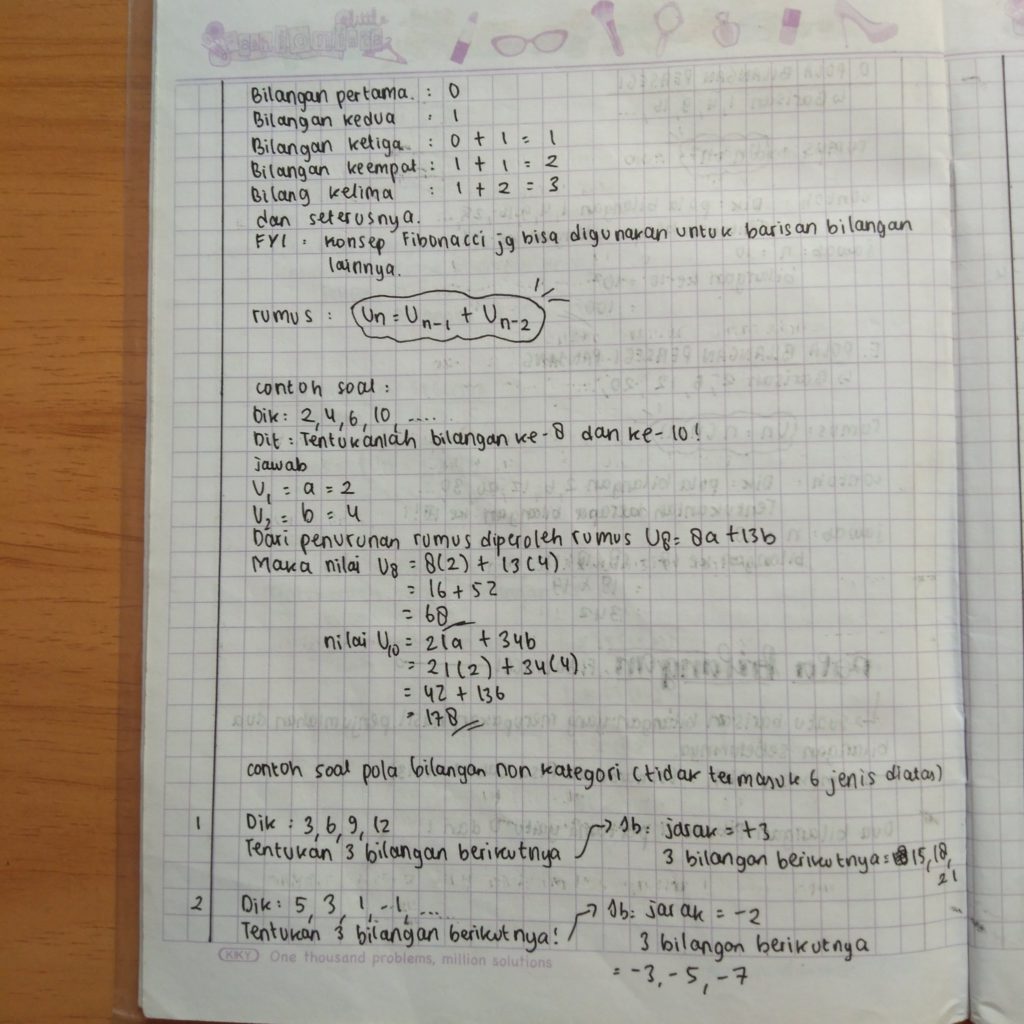 Bilangan pertama : 0
Bilangan kedua : 1
Bilangan ketiga : 0 + 1 = 1
Bilangan keempat : 1 + 1 = 2
Bilang kelima : 1 + 2 = 3
dan seterusnya.
FYI : Konsep Fibonacci jg bisa digunakan untuk barisan bilangan
lainnya.
rumus : Un = Un-1 + Un-2
contoh soal :
Dik : 2, 4, 6, 10, .....
Dit : Tentukanlah bilangan ke-8 dan ke-10!
jawab
U1 = a = 2
U2 = b = 4
Dari penurunan rumus diperoleh rumus U8 = 8a + 13b
Maka nilai U8 = 8(2) + 13(4)
= 16 + 52
= 68
nilai U10 = 21a + 34b
= 21(2) + 34(4)
= 42 + 136
= 178
contoh soal pola bilangan non kategori (tidak termasuk 6 jenis diatas)
1 Dik : 3, 6, 9, 12 → Jb: jarak = +3
Tentukan 3 bilangan berikutnya 3 bilangan berikutnya = 15, 18,
21
2 Dik : 5, 3, 1, -1, ... → Jb: jarak = -2
Tentukan 3 bilangan berikutnya! 3 bilangan berikutnya
KIKY One thousand problems, million solutions
= -3, -5, -7